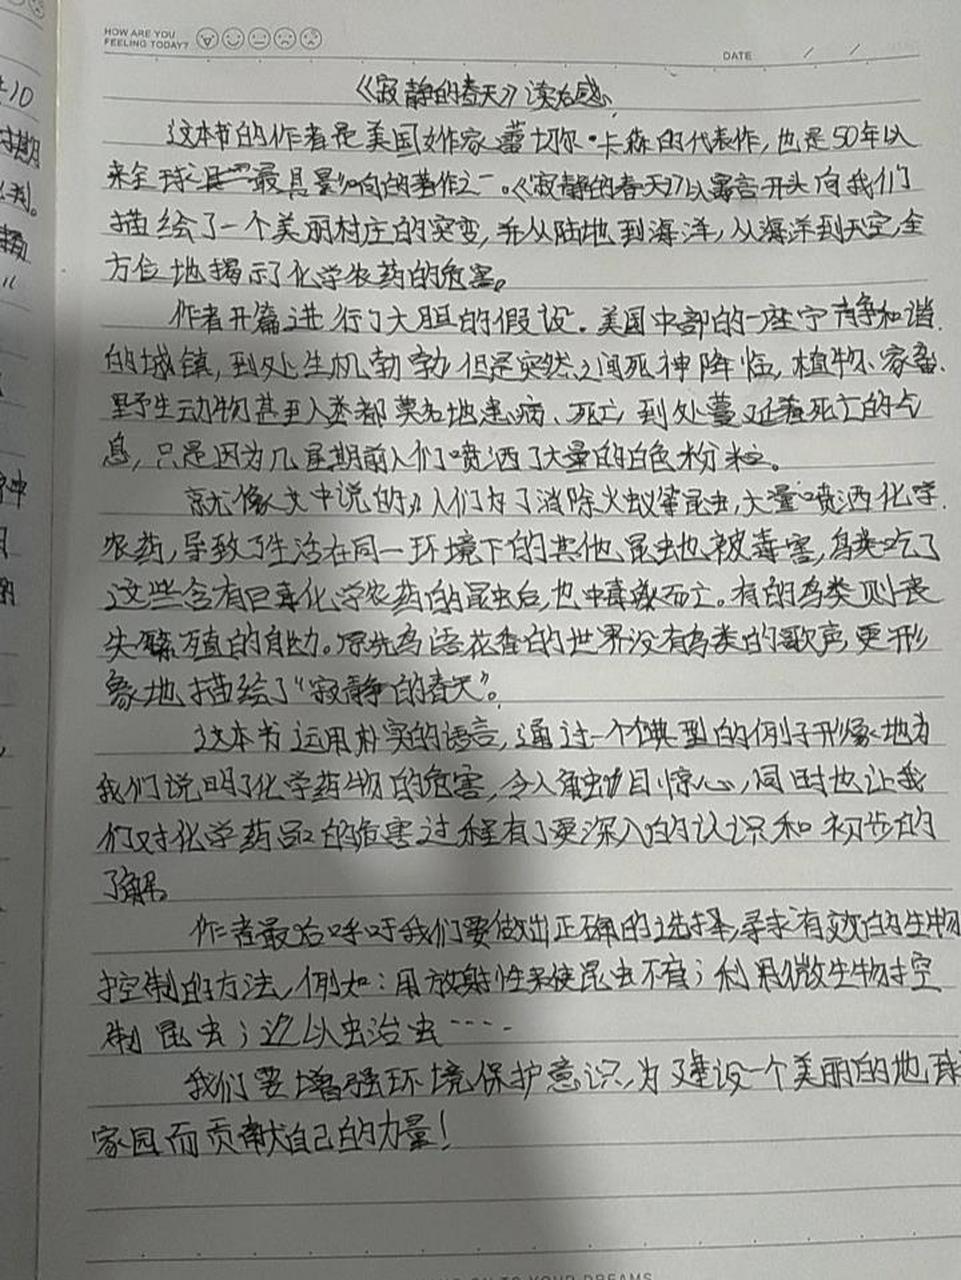 HOW ARE YOU
FEELING TODAY?
DATE / /
《寂静的春天》读后感
这本书的作者是美国女作家蕾切尔·卡森的代表作,也是50年以
来全球最具影响的著作之一。《寂静的春天》以寓言开头向我们
描绘了一个美丽村庄的突变,并从陆地到海洋,从海洋到天空,全
方位地揭示了化学农药的危害。
作者开篇进行了大胆的假设.美国中部的一座宁静和谐
的城镇,到处生机勃勃,但是突然之间死神降临,植物、家畜、
野生动物甚至人类都莫名地患病、死亡,到处蔓延着死亡的气
息,只是因为几星期前人们喷洒了大量的白色粉粒。
就像文中说的,人们为了消除火蚁等昆虫,大量喷洒化学
农药,导致了生活在同一环境下的其他昆虫也被毒害,鸟类吃了
这些含有巨毒化学农药的昆虫后,也中毒而亡。有的鸟类则丧
失繁殖的能力。原先鸟语花香的世界没有鸟类的歌声,更形
象地描绘了“寂静的春天”。
这本书运用朴实的语言,通过一个个典型的例子形像地为
我们说明了化学药物的危害,令人触目惊心,同时也让我
们对化学药品的危害过程有了更深入的认识和初步的
了解。
作者最后呼吁我们要做出正确的选择,寻求有效的生物
控制的方法,例如:用放射性来使昆虫不育;利用微生物控
制昆虫;以虫治虫····
我们要增强环境保护意识,为了建设一个美丽的地球
家园而贡献自己的力量!